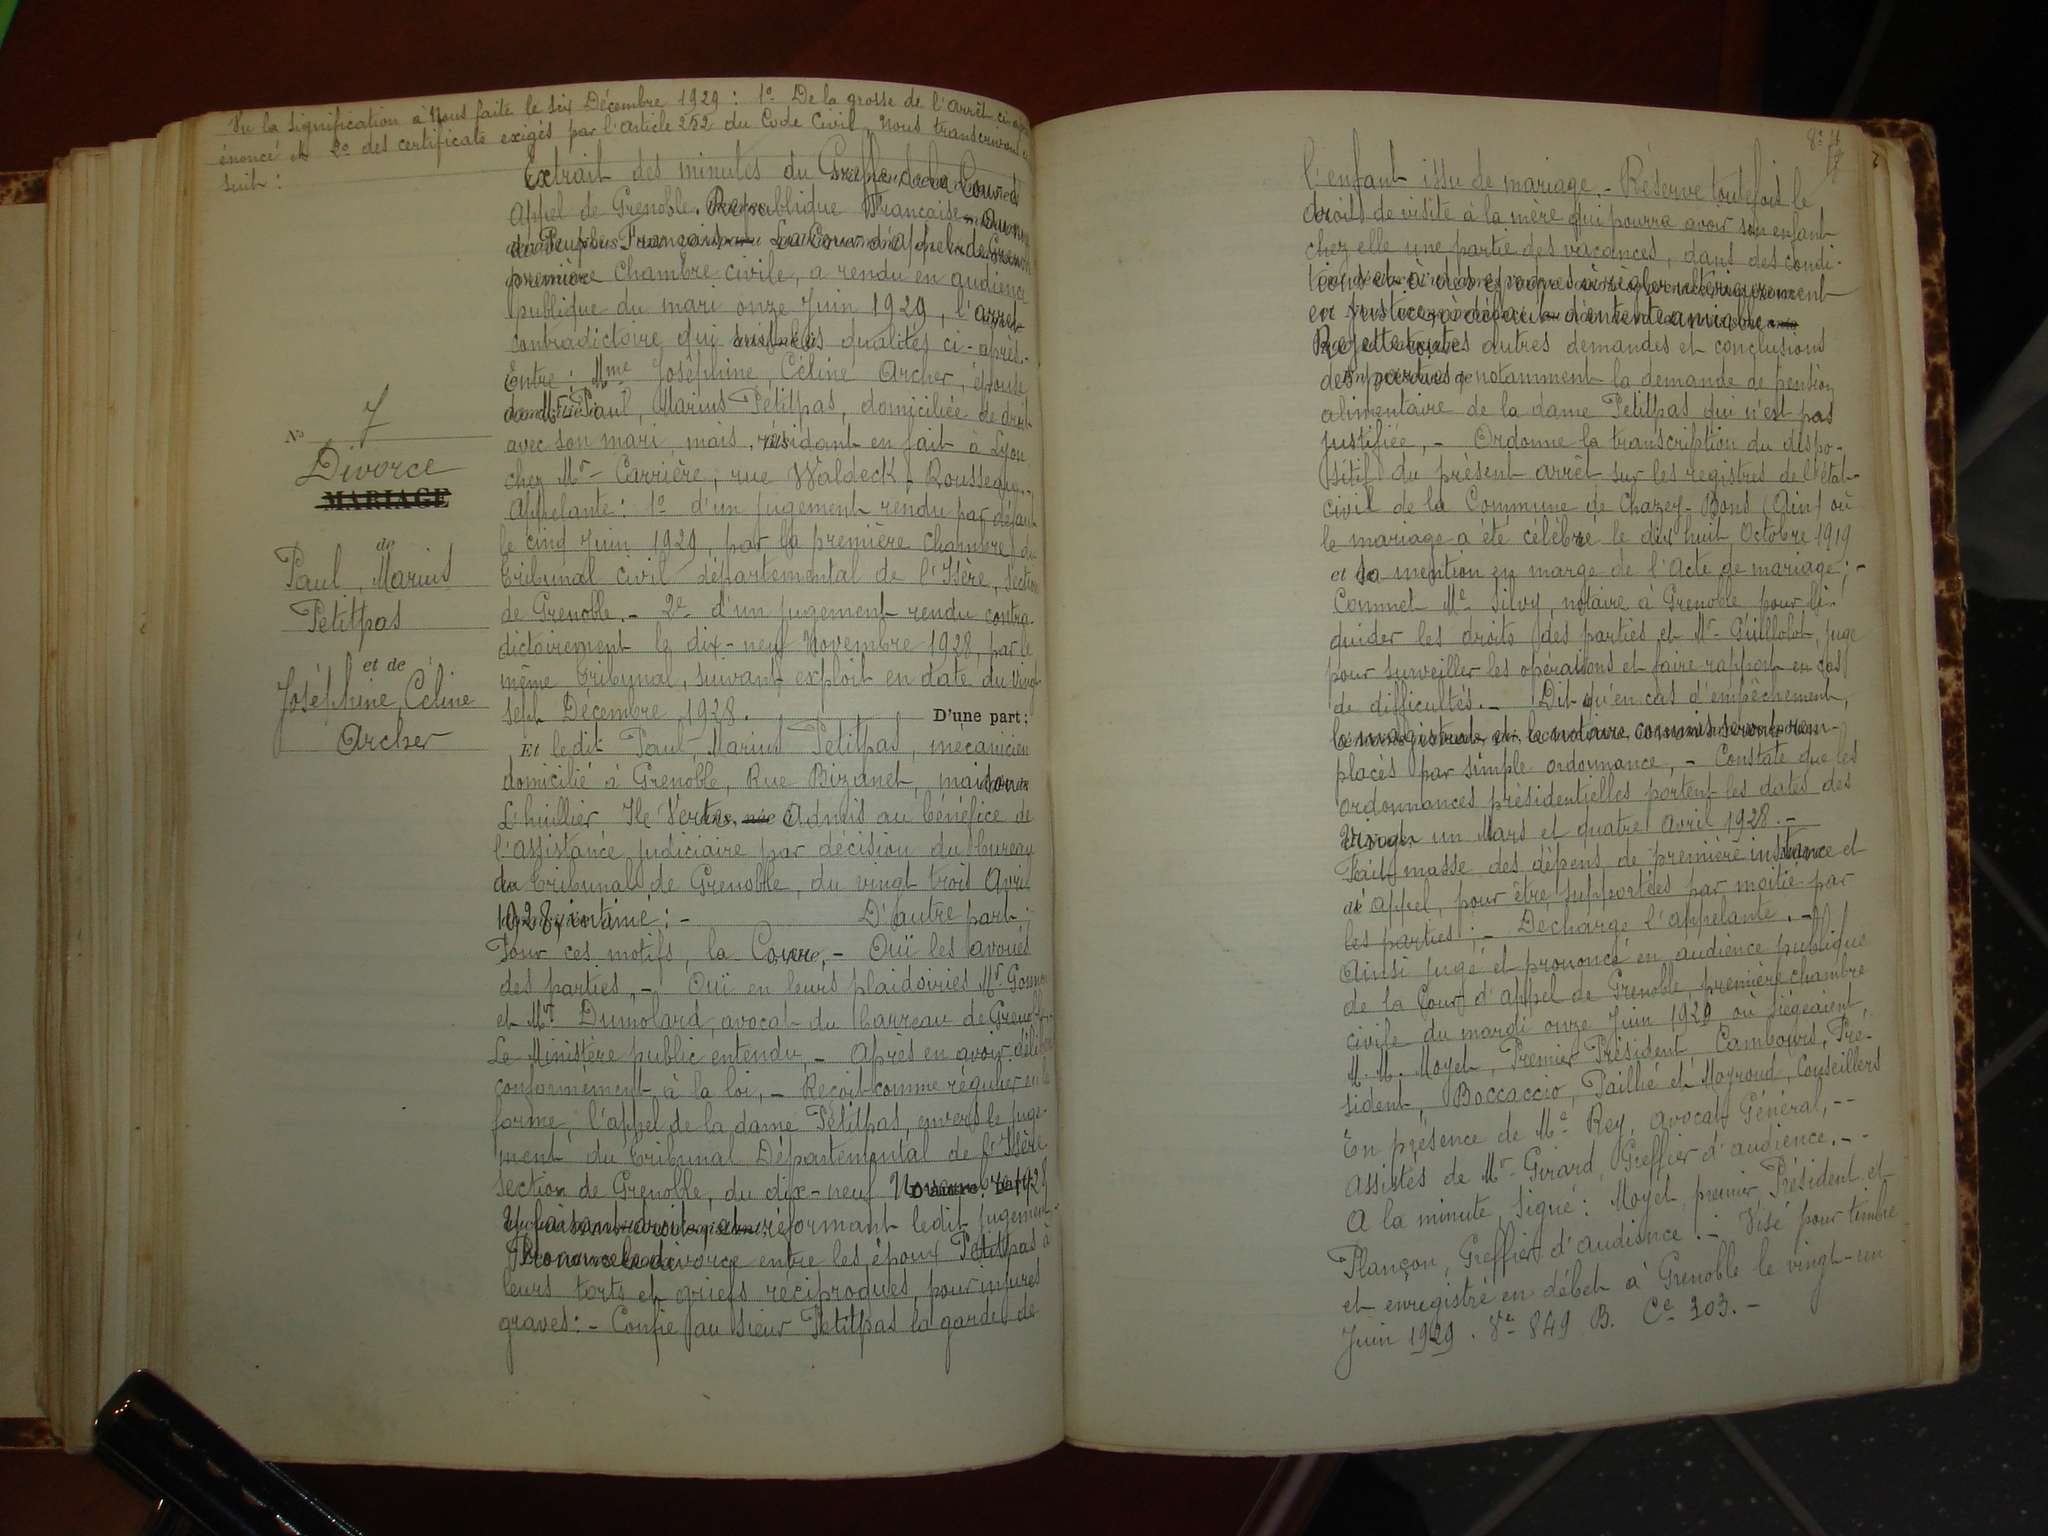 Vu la signification à Nous faite le six Décembre 1929 : 1º De la grosse de l'arrêt ci-après
énoncé et 2º des certificats exigés par l'Article 252 du Code Civil, Nous transcrivons
suit :
Nº 7
Divorce
MARIAGE
de
Paul, Marius
Petitpas
et de
Joséphine, Céline
Archer
Extrait des minutes du Greffe de la Cour d'
Appel de Grenoble. République Française. Au nom
du Peuple Français. La Cour d'appel de Grenoble
première chambre civile, a rendu en audience
publique du mari onze Juin 1929, l'arrêt
contradictoire qui suit les qualités ci-après.-
Entre : Mme Joséphine, Céline Archer, épouse
de Mr Paul, Marius Petitpas, domiciliée de droit
avec son mari, mais résidant en fait à Lyon
chez Mr Carrière, rue Waldeck-Rousseau,
Appelante : 1º d'un jugement rendu par défaut
le cinq Juin 1929, par la première chambre du
Tribunal civil départemental de l'Isère, section
de Grenoble. - 2º d'un jugement rendu contra-
dictoirement le dix-neuf Novembre 1928, par le
même Tribunal, suivant exploit en date du vingt
sept Décembre 1928. D'une part :
Et ledit Paul, Marius Petitpas, mécanicien
domicilié à Grenoble, Rue Bizanet, maison
L'huillier Ile Verte, Admis au bénéfice de
l'assistance judiciaire par décision du bureau
du tribunal de Grenoble, du vingt trois Avril
1928, intimé : - D'autre part ;
Pour ces motifs, la Cour, - Ouï les avoués
des parties, - Ouï en leurs plaidoiries Mr
et Mr Dumolard, avocat du barreau de Grenoble
Le Ministère public entendu, - Après en avoir délibéré
conformément à la loi, - Reçoit comme régulier en la
forme, l'appel de la dame Petitpas, envers le juge-
ment du tribunal Départemental de l'Isère
section de Grenoble, du dix-neuf Novembre 1928
Y faisant droit, et réformant ledit jugement
Prononce le divorce entre les époux Petitpas à
leurs torts et griefs réciproques, pour injures
graves : - Confie au sieur Petitpas la garde de
l'enfant issu de mariage. - Réserve toutefois le
droits de visite à la mère qui pourra avoir son enfant
chez elle une partie des vacances, dans des condi-
tions et à des époques à régler ultérieurement
en justice, à défaut d'entente amiable
Rejette toutes autres demandes et conclusions
des parties, notamment la demande de pension
alimentaire de la dame Petitpas qui n'est pas
justifiée, - Ordonne la transcription du dispo-
sitif du présent arrêt sur les registres de l'état-
civil de la Commune de Chazey-Bons (Ain) où
le mariage a été célébré le dix huit Octobre 1919
et sa mention en marge de l'acte de mariage ; -
Commet Me Silvy, notaire à Grenoble pour li-
quider les droits des parties et Mr Guillolot, juge
pour surveiller les opérations et faire rapport en cas
de difficultés. - Dit qu'en cas d'empêchement,
le magistrat et le notaire commis seront rem-
placés par simple ordonnance, - Constate que les
ordonnances présidentielles portent les dates des
vingt un Mars et quatre Avril 1928. -
Fait masse des dépens de première instance et
d'appel, pour être supportées par moitié par
les parties ; - Décharge l'appelante. -
Ainsi jugé et prononcé en audience publique
de la Cour d'appel de Grenoble, première chambre
civile du mardi onze Juin 1929 où siégeaient,
M. M. Moyet, Premier Président, Cambours, Pré-
sident, Boccaccio, Pailhé et Moyroud, Conseillers
En présence de Me Rey, avocat Général, --
Assistés de Mr Girard, Greffier d'audience. --
A la minute, signé : Moyet, premier Président et
Plançon, Greffier d'audience. - Visé pour timbre
et enregistré en débet à Grenoble le vingt-un
Juin 1929. Vº 849 B. Ce 303. -